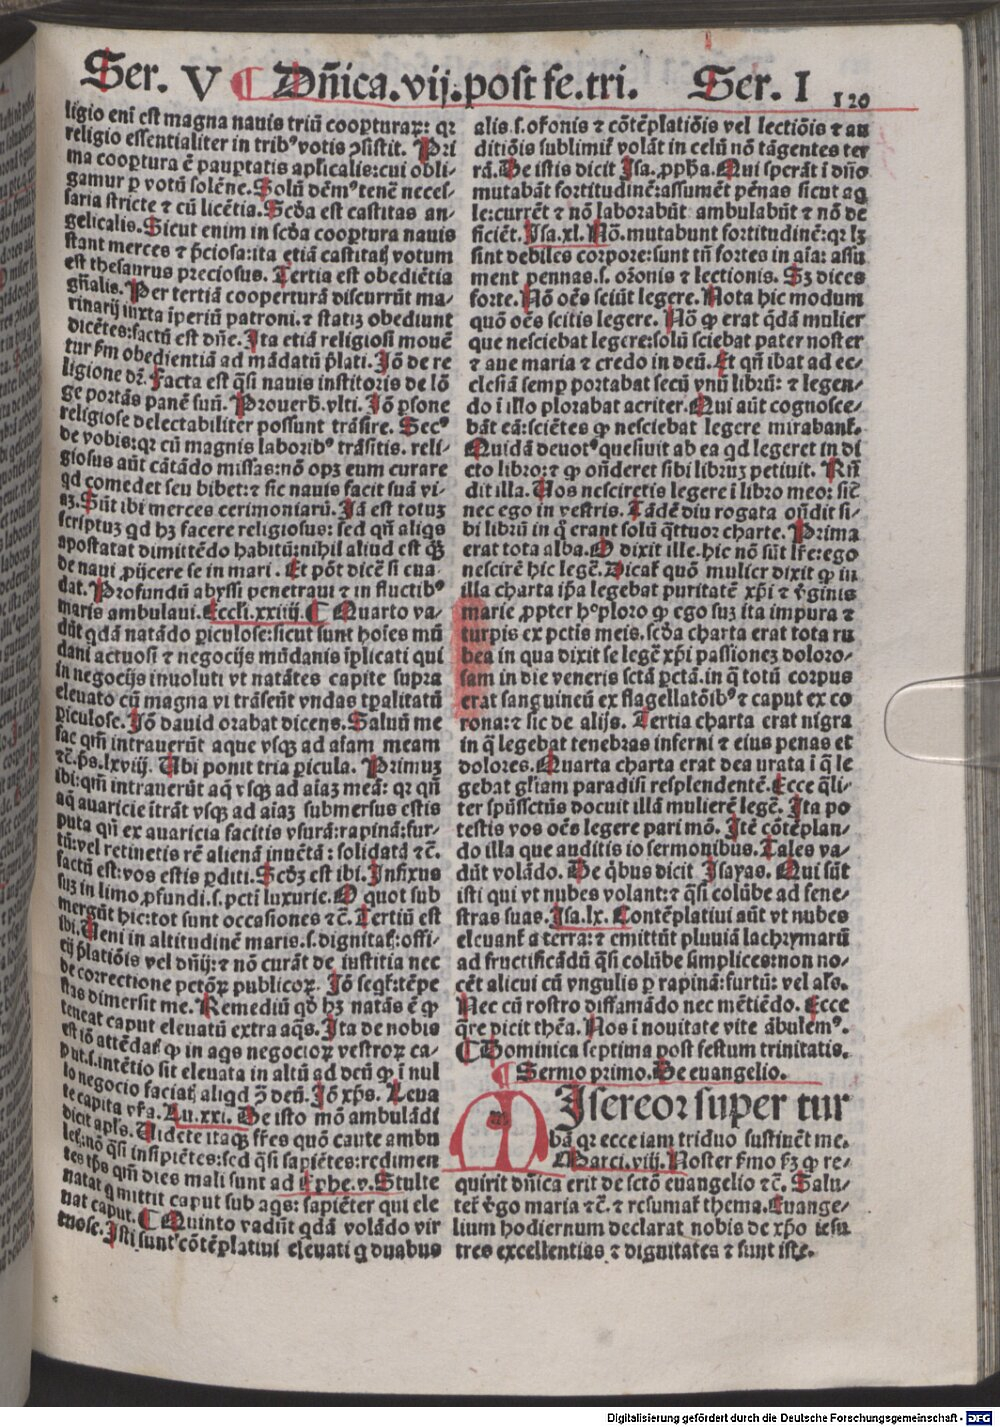 Ser. V ¶ Dñica.vij.post fe.tri. Ser. I 120
ligio eni est magna nauis triū coopturaꝝ: qꝛ
religio essentialiter in trib⁹ votis ꝯsistit. Pri
ma cooptura ē pauptatis aplicalis: cui obli-
gamur ꝑ votū solēne. Solū dēm⁹ tenē neces-
saria stricte ⁊ cū licētia. Scda est castitas an-
gelicalis. Sicut enim in scda cooptura nauis
stant merces ⁊ p̄ciosa: ita etiā castitatꝭ votum
est thesaurus preciosus. Tertia est obediētia
gn̄alis. Per tertiā cooperturā discurrūt ma-
rinarij iuxta īperiū patroni. ⁊ statiꝫ obediunt
dicētes: factū est dn̄e. Ita etiā religiosi mouē
tur ẜm obedientiā ad mādatū p̄lati. Jō de re
ligione dꝛ. Facta est q̄si nauis institoris de lō
ge portās panē suū. Prouerb. vlti. Jō ꝑsone
religiose delectabiliter possunt trāsire. Sec⁹
de vobis: qꝛ cū magnis laborib⁹ trāsitis. reli-
giosus aūt cātādo missas: nō opꝫ eum curare
qd comedet seu bibet: ⁊ sic nauis facit suā vi-
aꝫ. Sūt ibi merces cerimoniarū. Jā est totuꝫ
scriptuꝫ qd hꝫ facere religiosus: sed qn̄ aliqs
apostatat dimittēdo habitū: nihil aliud est qꝫ
de naui ꝓijcere se in mari. Et pōt dicē si cua-
dat. Profundū abyssi penetraui ⁊ in fluctib⁹
maris ambulaui. Eccli. xxiiij. ¶ Quarto va-
dūt qdā natādo ꝑiculose: sicut sunt hoīes mū
dani actuosi ⁊ negocijs mūdanis īplicati qui
in negocijs inuoluti vt natātes capite supra
eleuato cū magna vi trāseūt vndas tꝑalitatū
ꝑiculose. Jō dauid orabat dicens. Saluū me
fac qm̄ intrauerūt aque vsqꝫ ad aīam meam
⁊c̄. ps. lxviij. Ubi ponit tria ꝑicula. Primuꝫ
ibi: qm̄ intrauerūt aq̄ vsqꝫ ad aīaꝫ meā: qꝛ qn̄
aq̄ auaricie ītrāt vsqꝫ ad aīaꝫ submersus estis
puta qn̄ ex auaricia facitis vsurā: rapinā: fur-
tū: vel retinetis rē alienā inuētā: solidatā ⁊c̄.
factū est: vos estis ꝑditi. Scdꝫ est ibi. Infixus
suꝫ in limo ꝓfundi. s. pcti luxurie. O quot sub
mergūt hic: tot sunt occasiones ⁊c̄. Tertiū est
ibi. Ueni in altitudinē maris. s. dignitatꝭ: offi-
cij p̄latiōis vel dn̄ij: ⁊ nō curāt de iustitia nec
de correctione pctōꝝ publicoꝝ. Jō seqtꝛ: tēpe
stas dimersit me. Remediū qd hꝫ natās ē ꝙ
teneat caput eleuatū extra aq̄s. Ita de nobis
est jō attēdatꝭ ꝙ in aqs negocioꝝ vestroꝝ ca-
put. s. intētio sit eleuata in altū ad deū ꝙ ī nul
lo negocio faciatꝭ aliqd ꝯ̄ deū. Jō xp̄s. Leua
te capita vr̄a. Lu. xxi. De isto mō ambulādi
dicit apl̄s. Uidete itaqꝫ fr̄es quō caute ambu
letꝭ: nō q̄si insipiētes: sed q̄si sapiētes: redimen
tes tp̄s qm̄ dies mali sunt ad Ephe. v. Stulte
natat q̄ mittit caput sub aqs: sapiēter qui ele
uat caput. ¶ Quinto vadūt qdā volādo vir
tuose. Isti sunt cōtēplatiui eleuati q̄ duabus
alis. s. orōnis ⁊ cōtēplatiōis vel lectiōis ⁊ au
ditiōis sublimitꝛ volāt in celū nō tāgentes ter
rā. De istis dicit Isa. ꝓph̄a. Qui sperāt ī dn̄o
mutabūt fortitudinē: assumēt pēnas sicut aq
le: currēt ⁊ nō laborabūt ambulabūt ⁊ nō de
ficiēt. Isa. xl. Nō. mutabunt fortitudinē: qꝛ lꝫ
sint debiles corpore: sunt tn̄ fortes in aīa: assu
ment pennas. s. orōnis ⁊ lectionis. Sꝫ dices
forte. Nō oēs sciūt legere. Nota hic modum
quō oēs scitis legere. Nō ꝙ erat qdā mulier
que nesciebat legere: solū sciebat pater noster
⁊ aue maria ⁊ credo in deū. Et qn̄ ibat ad ec-
clesiā semꝑ portabat secū vnū librū: ⁊ legen-
do ī illo plorabat acriter. Qui aūt cognosce-
bāt eā: sciētes ꝙ nesciebat legere mirabantꝛ.
Quidā deuot⁹ quesiuit ab ea qd legeret in di
cto libro: ⁊ ꝙ on̄deret sibi libruꝫ petiuit. Rn̄
dit illa. Uos nesciretis legere ī libro meo: sic̄
nec ego in vestris. Tādē diu rogata on̄dit si-
bi librū in q̄ erant solū q̄ttuor charte. Prima
erat tota alba. O dixit ille. hic nō sūt lr̄e: ego
nescirē hic legē. Dicatꝛ quō mulier dixit ꝙ in
illa charta ip̄a legebat puritatē xp̄i ⁊ v̄ginis
marie ꝓpter hoc ploro ꝙ ego suꝫ ita impura ⁊
turpis ex pctis meis. scda charta erat tota ru
bea in qua dixit se legē xp̄i passioneꝫ doloro-
sam in die veneris sctā ꝑctā. in q̄ totū corpus
erat sanguineū ex flagellatōib⁹ ⁊ caput ex co
rona: ⁊ sic de alijs. Tertia charta erat nigra
in q̄ legebat tenebras inferni ⁊ eius penas et
dolores. Quarta charta erat deaurata ī q̄ le
gebat gl̄iam paradisi resplendentē. Ecce q̄li-
ter spūssctūs docuit illā mulierē legē. Ita po
testis vos oēs legere pari mō. Itē cōtēplan-
do illa que auditis ī sermonibus. Tales va-
dūt volādo. De q̄bus dicit Isayas. Qui sūt
isti qui vt nubes volant: ⁊ q̄si colūbe ad fene-
stras suas. Isa. lx. Contēplatiui aūt vt nubes
eleuantꝛ a terra: ⁊ emittūt pluuiā lachrymarū
ad fructificādū q̄si colūbe simplices: non no-
cēt alicui cū vngulis ꝑ rapinā: furtū: vel al's.
Nec cū rostro diffamādo nec mētiēdo. Ecce
q̄re picit thēa. Nos ī nouitate vite ābulem⁹.
¶ Dominica septima post festum trinitatis.
¶ Sermo primo. De euangelio.
MIsereor super tur
bā qꝛ ecce iam triduo sustinēt me.
Marci. viij. Noster ẜmo ẜꝫ ꝙ re-
quirit dn̄ica erit de sctō euangelio ⁊c̄. Salu-
tetꝛ v̄go maria ⁊c̄. ⁊ resumatꝛ thema. Euange-
lium hodiernum declarat nobis de xp̄o iesu
tres excellentias ⁊ dignitates ⁊ sunt iste.
Digitalisierung gefördert durch die Deutsche Forschungsgemeinschaft - DFG